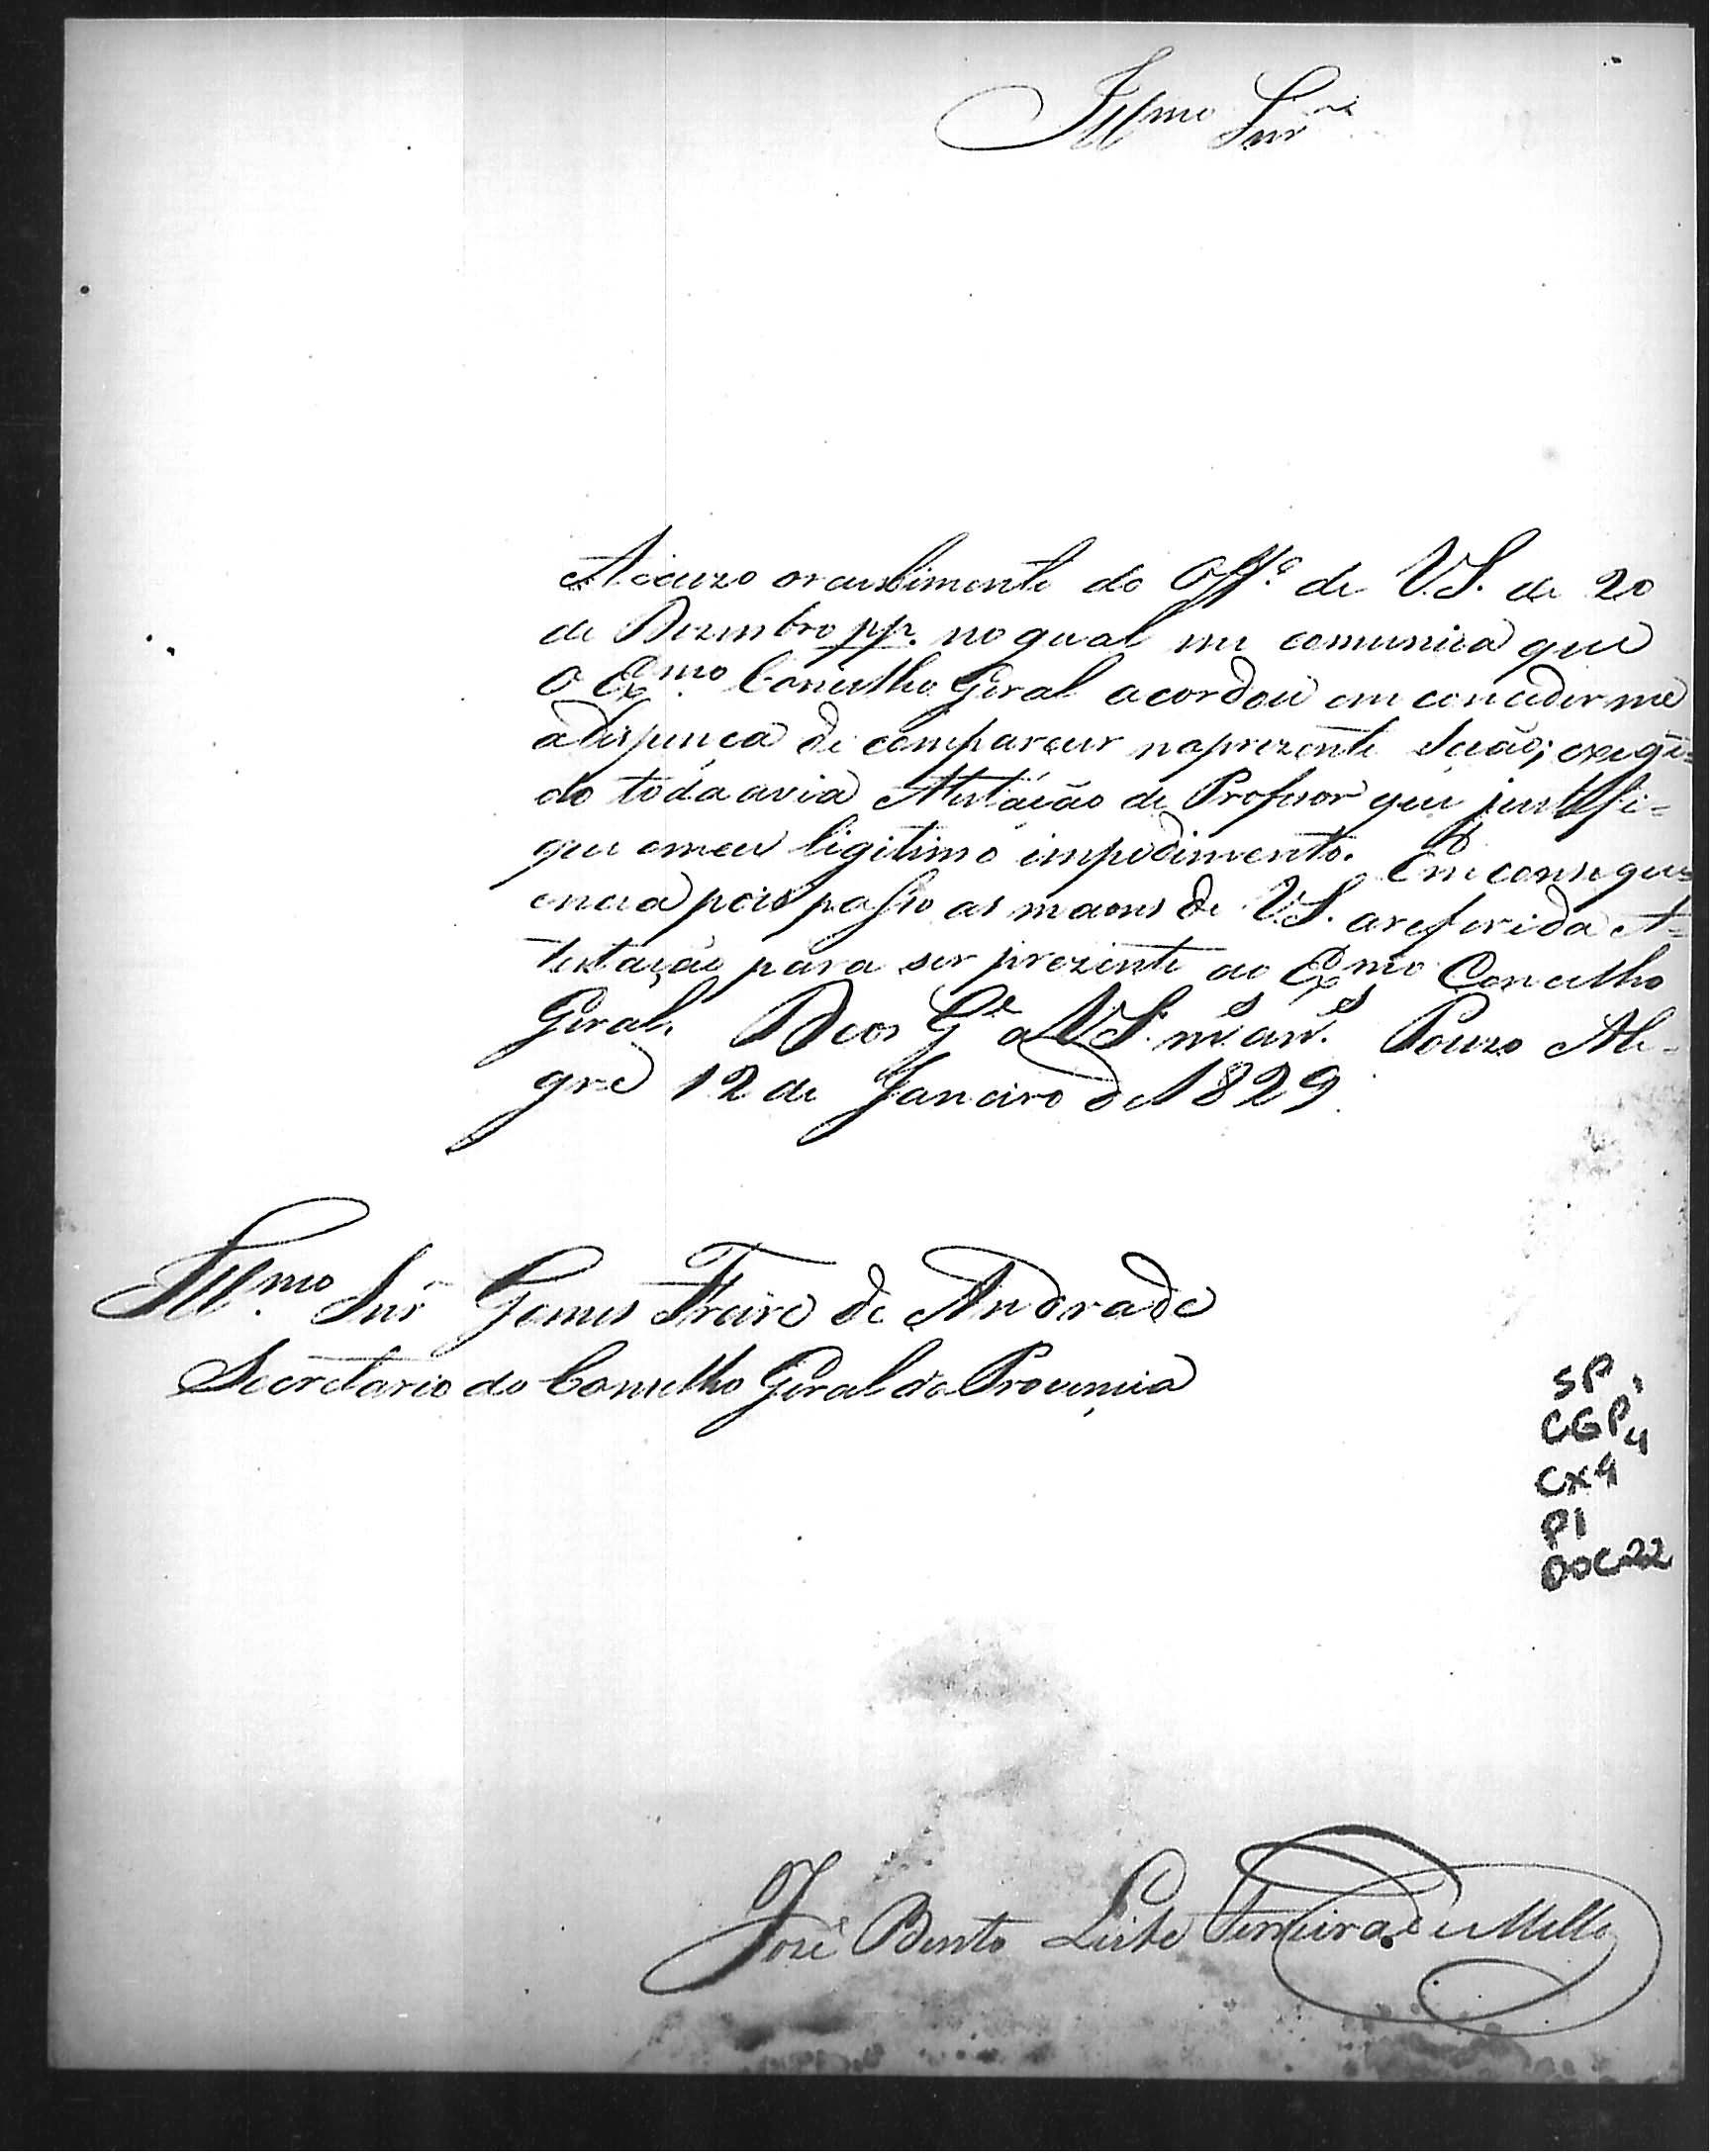 Illmo Snr
Acuzo orecebimento do Offº de V.S. de 20
de Dezembro pp. no qual me comunica que
o Exmo Concelho Geral acordou em concederme
adispença de comparecer naprezente Seção; exegi=
do toda avia Attestação de Professor que justifi=
que omeu ligitimo impedimento. Em consequ=
encia pois passo as maons de V.S. areferida At=
testação para ser prezente ao Exmo Concelho
Geral. Deos Gᵉ a V.S. mˢ anˢ. Pouzo Ale-
gre 12 de Janeiro de 1829.
Illmo Snr Gomes Freire de Andrade
Secretario do Conselho Geral da Provincia
SP,
CGP,4
CX4
P1
DOC22
José Bento Leite Ferreira de Mello